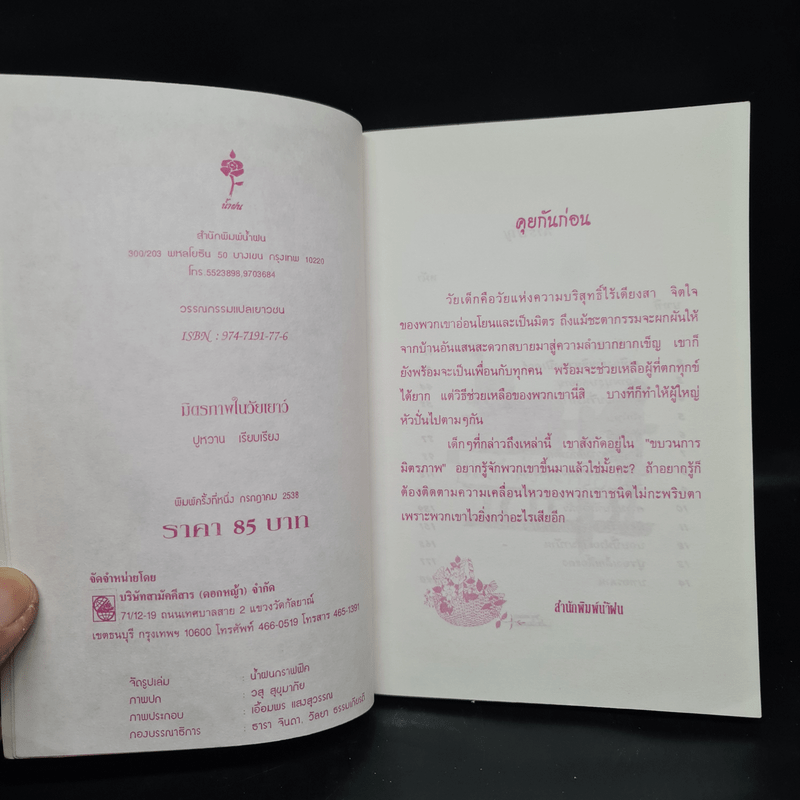 น้ำฝน
สำนักพิมพ์น้ำฝน
300/203 พหลโยธิน 50 บางเขน กรุงเทพ 10220
โทร.5523898,9703684
วรรณกรรมแปลเยาวชน
ISBN : 974-7191-77-6
มิตรภาพในวัยเยาว์
ปูหวาน เรียบเรียง
พิมพ์ครั้งที่หนึ่ง กรกฎาคม 2538
ราคา 85 บาท
จัดจำหน่ายโดย
บริษัทสามัคคีสาร (ดอกหญ้า) จำกัด
71/12-19 ถนนเทศบาลสาย 2 แขวงวัดกัลยาณ์
เขตธนบุรี กรุงเทพฯ 10600 โทรศัพท์ 466-0519 โทรสาร 465-1391
จัดรูปเล่ม : น้ำฝนกราฟฟิค
ภาพปก : วสุ สุขุมาภัย
ภาพประกอบ : เอื้อมพร แสงสุวรรณ
กองบรรณาธิการ : ธารา จินดา, วิลยา ธรรมเกียรติ
คุยกันก่อน
วัยเด็กคือวัยแห่งความบริสุทธิ์ไร้เดียงสา จิตใจ
ของพวกเขาอ่อนโยนและเป็นมิตร ถึงแม้ชะตากรรมจะผกผันให้
จากบ้านอันแสนสะดวกสบายมาสู่ความลำบากยากเข็ญ เขาก็
ยังพร้อมจะเป็นเพื่อนกับทุกคน พร้อมจะช่วยเหลือผู้ที่ตกทุกข์
ได้ยาก แต่วิธีช่วยเหลือของพวกเขานี่สิ บางทีก็ทำให้ผู้ใหญ่
หัวปั่นไปตามๆกัน
เด็กๆที่กล่าวถึงเหล่านี้ เขาสังกัดอยู่ใน "ขบวนการ
มิตรภาพ" อยากรู้จักพวกเขาขึ้นมาแล้วใช่มั้ยคะ? ถ้าอยากรู้ก็
ต้องติดตามความเคลื่อนไหวของพวกเขาชนิดไม่กะพริบตา
เพราะพวกเขาไวยิ่งกว่าอะไรเสียอีก
สำนักพิมพ์น้ำฝน